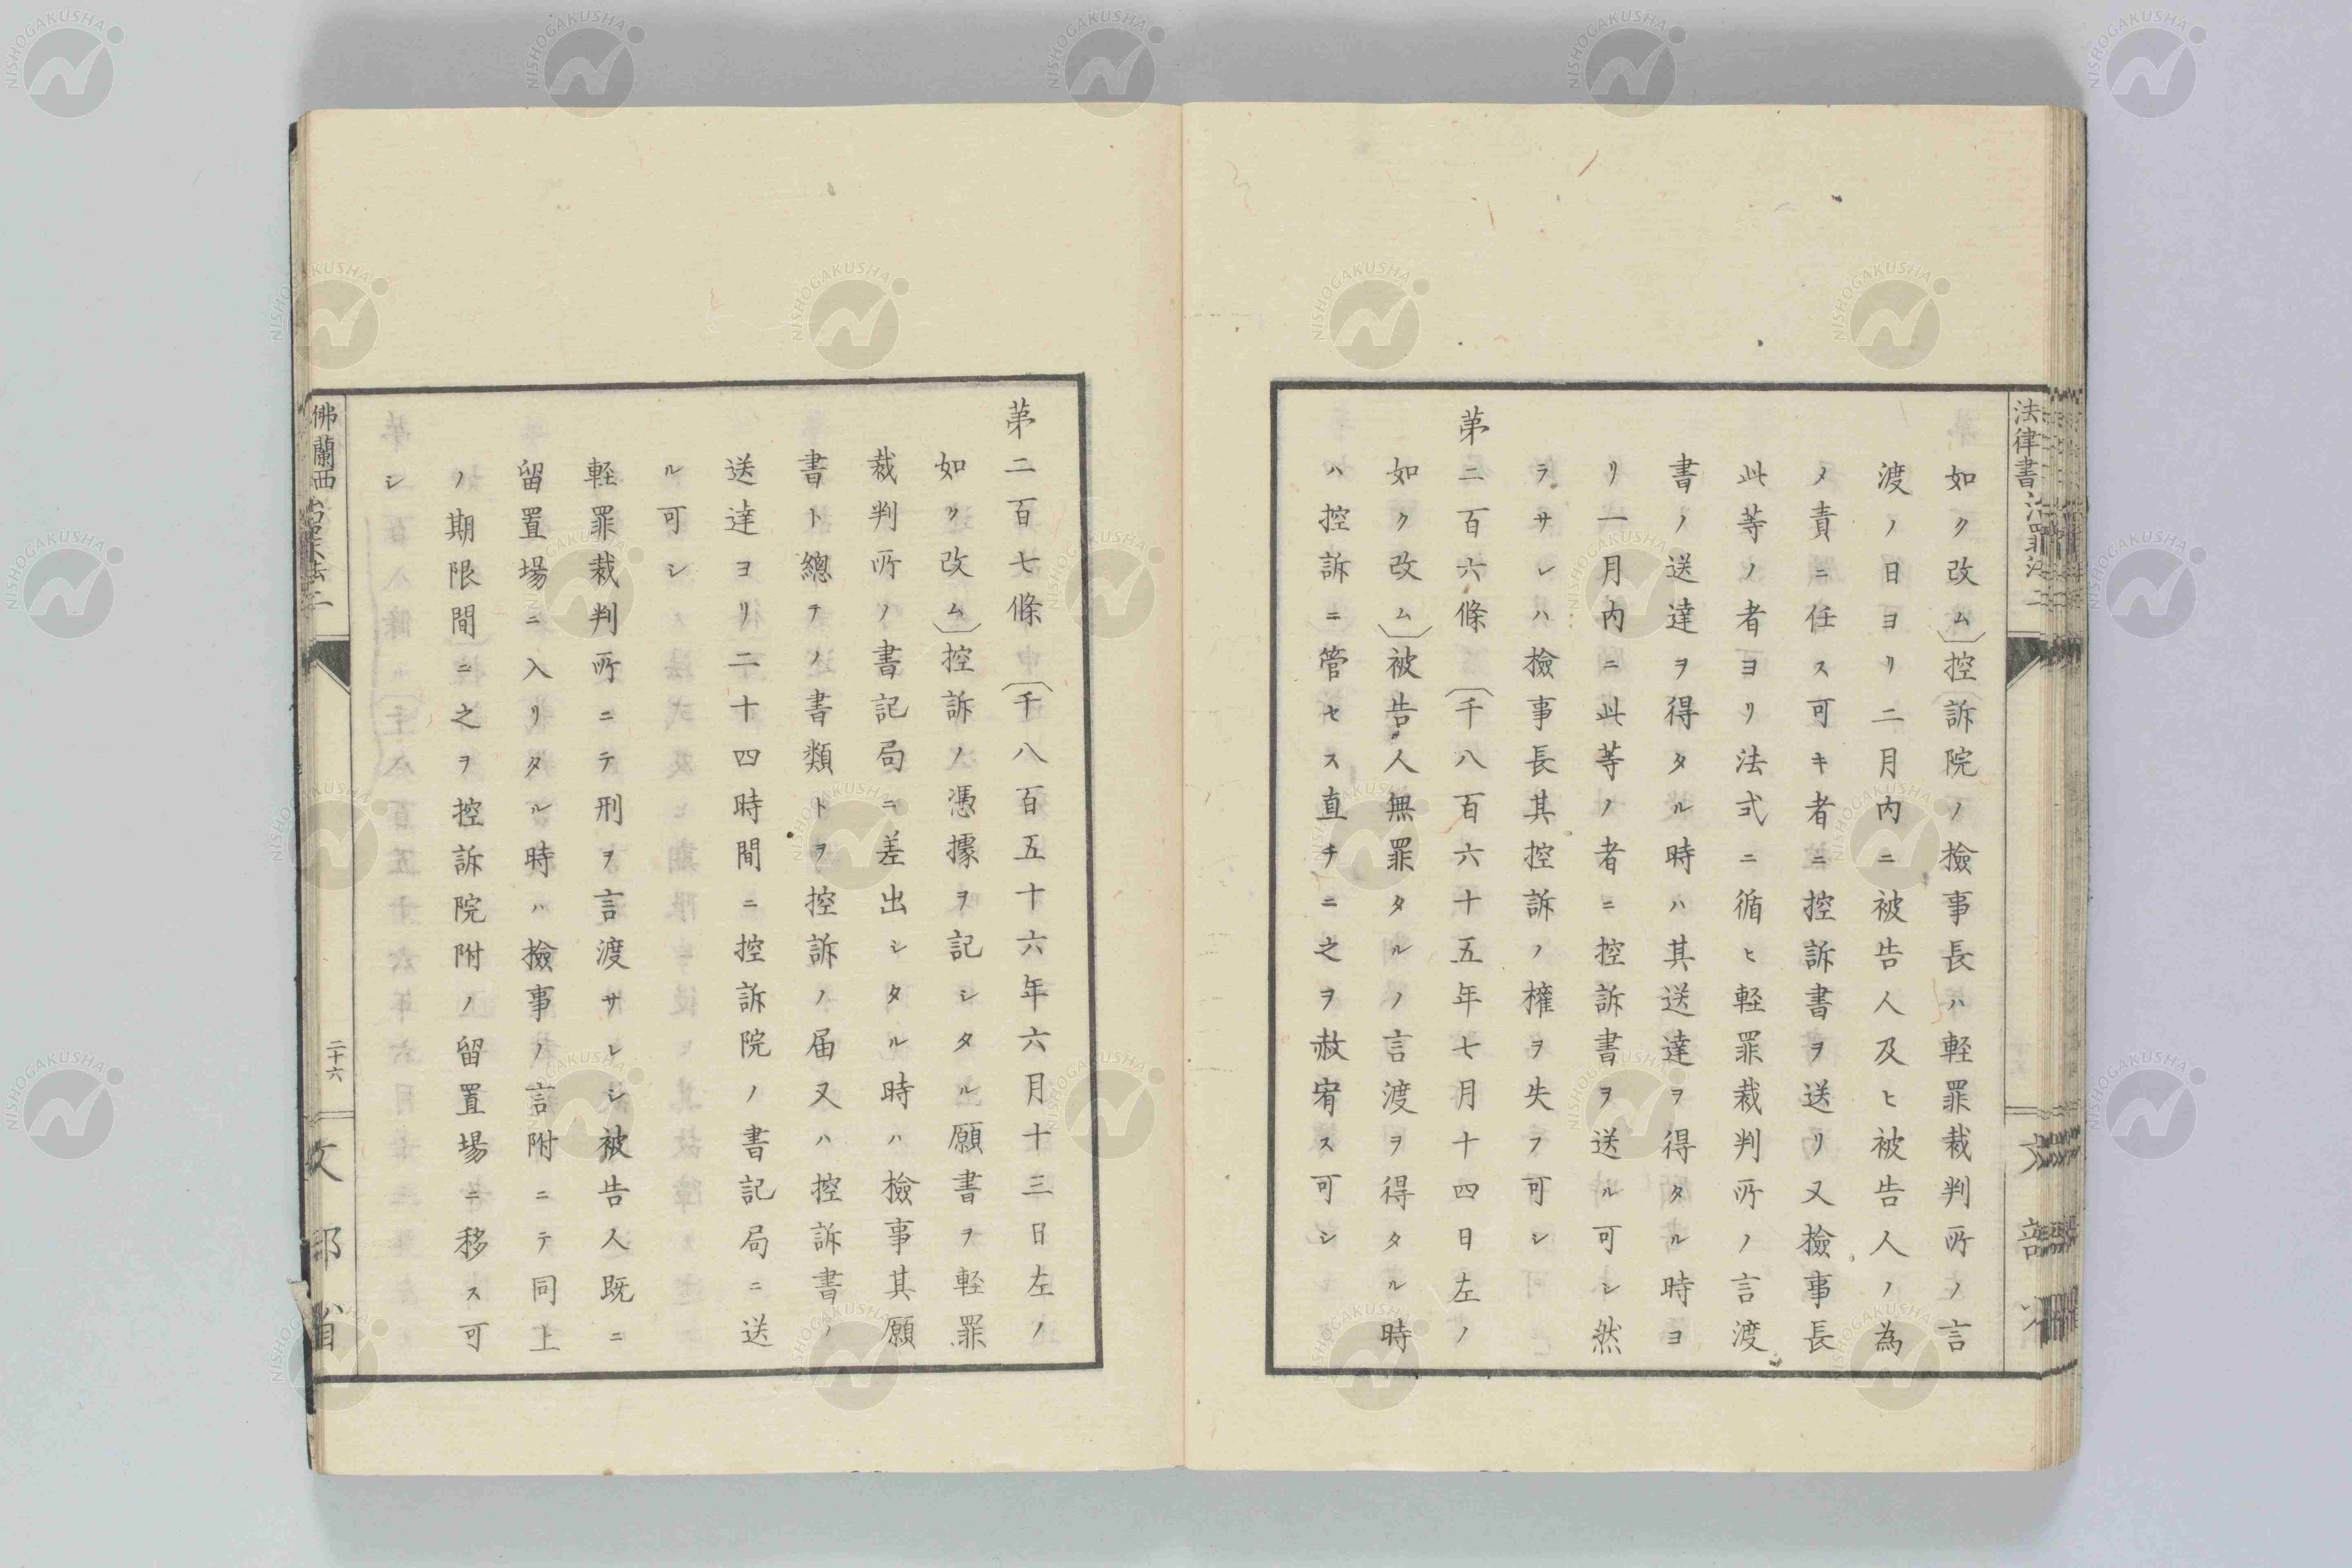 法律書 治罪法 二
如ク改ム〕控訴院ノ檢事長ハ軽罪裁判所ノ言
渡ノ日ヨリ二月内ニ被告人及ヒ被告人ノ為
メ責ニ任ス可キ者ニ控訴書ヲ送リ又檢事長
此等ノ者ヨリ法式ニ循ヒ軽罪裁判所ノ言渡
書ノ送達ヲ得タル時ハ其送達ヲ得タル時ヨ
リ一月内ニ此等ノ者ニ控訴書ヲ送ル可シ然
ラサレハ檢事長其控訴ノ權ヲ失フ可シ
第二百六條〔千八百六十五年七月十四日左ノ
如ク改ム〕被告人無罪タルノ言渡ヲ得タル時
ハ控訴ニ管セス直チニ之ヲ赦宥ス可シ
第二百七條〔千八百五十六年六月十三日左ノ
如ク改ム〕控訴ノ憑據ヲ記シタル願書ヲ軽罪
裁判所ノ書記局ニ差出シタル時ハ檢事其願
書ト總テノ書類トヲ控訴ノ届又ハ控訴書ノ
送達ヨリ二十四時間ニ控訴院ノ書記局ニ送
ル可シ
軽罪裁判所ニテ刑ヲ言渡サレシ被告人既ニ
留置場ニ入リタル時ハ檢事ノ言附ニテ同上
ノ期限間ニ之ヲ控訴院附ノ留置場ニ移ス可
シ
佛蘭西治罪法 二
二十六
文部省
NISHOGAKUSHA